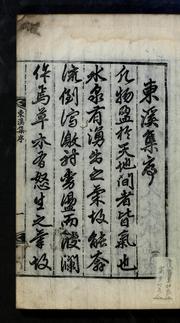 東溪集序
凡物盈於天地間者皆氣也
水泉有湧出之氣故能奔
流倒瀉激射重溼而波瀾
作焉草木有怒生之氣故
東溪集序
一